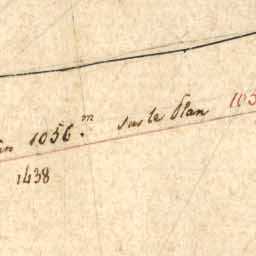 in 1056.m sur le Plan 105
1438